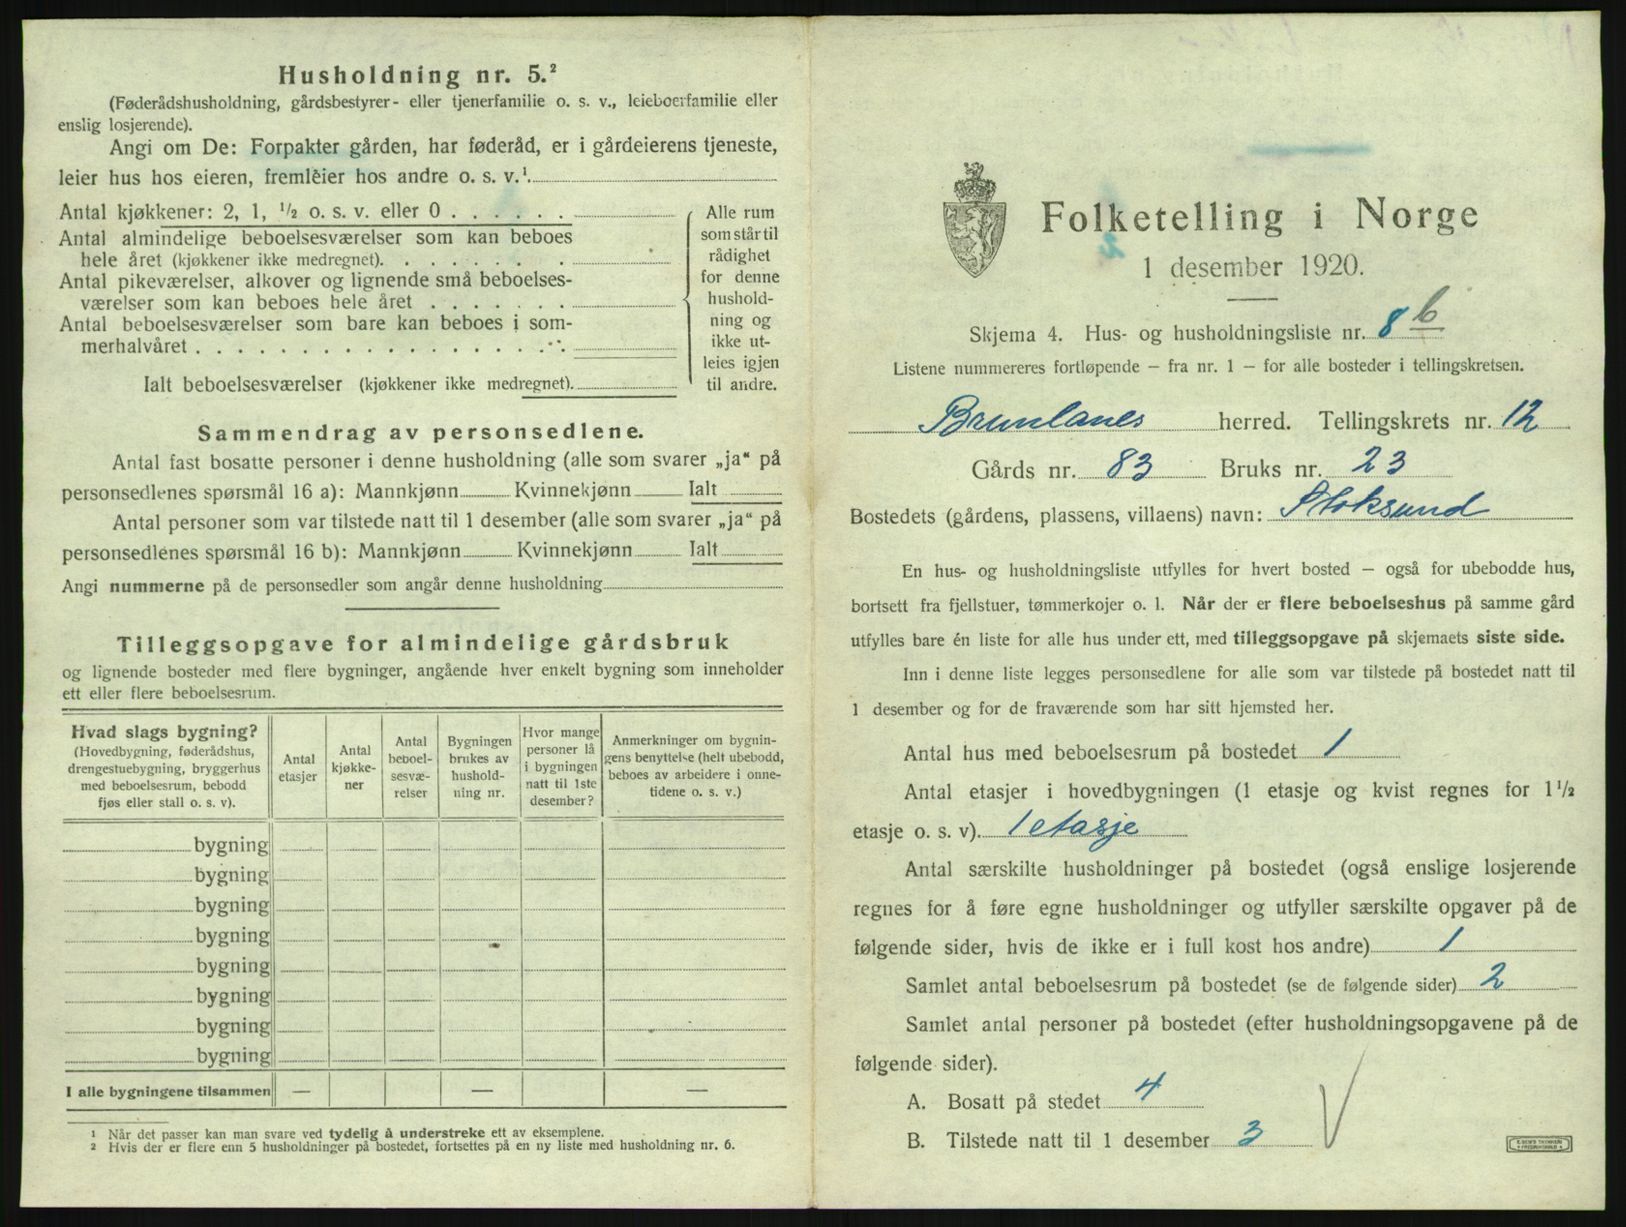 Husholdning nr. 5.²
(Føderådshusholdning, gårdsbestyrer- eller tjenerfamilie o. s. v., leieboerfamilie eller
enslig losjerende).
Angi om De: Forpakter gården, har føderåd, er i gårdeierens tjeneste,
leier hus hos eieren, fremleier hos andre o. s. v.¹
Antal kjøkkener: 2, 1, ½ o. s. v. eller 0
Antal almindelige beboelsesværelser som kan beboes
hele året (kjøkkener ikke medregnet).
Antal pikeværelser, alkover og lignende små beboelses-
værelser som kan beboes hele året
Antal beboelsesværelser som bare kan beboes i som-
merhalvåret
Ialt beboelsesværelser (kjøkkener ikke medregnet).
Alle rum
som står til
rådighet
for denne
hushold-
ning og
ikke ut-
leies igjen
til andre.
Sammendrag av personsedlene.
Antal fast bosatte personer i denne husholdning (alle som svarer „ja“ på
personsedlenes spørsmål 16 a): Mannkjønn Kvinnekjønn Ialt
Antal personer som var tilstede natt til 1 desember (alle som svarer „ja“ på
personsedlenes spørsmål 16 b): Mannkjønn Kvinnekjønn Ialt
Angi nummerne på de personsedler som angår denne husholdning
Tilleggsopgave for almindelige gårdsbruk
og lignende bosteder med flere bygninger, angående hver enkelt bygning som inneholder
ett eller flere beboelsesrum.
Hvad slags bygning?
(Hovedbygning, føderådshus,
drengestuebygning, bryggerhus
med beboelsesrum, bebodd
fjøs eller stall o. s. v).
Antal
etasjer
Antal
kjøkke-
ner
Antal
beboel-
sesvæ-
relser
Bygningen
brukes av
hushold-
ning nr.
Hvor mange
personer lå
i bygningen
natt til 1ste
desember?
Anmerkninger om bygnin-
gens benyttelse (helt ubebodd,
beboes av arbeidere i onne-
tidene o. s. v.)
bygning
bygning
bygning
bygning
bygning
bygning
bygning
bygning
I alle bygningene tilsammen — — —
¹ Når det passer kan man svare ved tydelig å understreke ett av eksemplene.
² Hvis der er flere enn 5 husholdninger på bostedet, fortsettes på en ny liste med husholdning nr. 6.
Folketelling i Norge
1 desember 1920.
Skjema 4. Hus- og husholdningsliste nr. 8 b
Listene nummereres fortløpende — fra nr. 1 — for alle bosteder i tellingskretsen.
Brunlanes herred. Tellingskrets nr. 12
Gårds nr. 83 Bruks nr. 23
Bostedets (gårdens, plassens, villaens) navn: Stoksund
En hus- og husholdningsliste utfylles for hvert bosted — også for ubebodde hus,
bortsett fra fjellstuer, tømmerkojer o. l. Når der er flere beboelseshus på samme gård
utfylles bare én liste for alle hus under ett, med tilleggsopgave på skjemaets siste side.
Inn i denne liste legges personsedlene for alle som var tilstede på bostedet natt til
1 desember og for de fraværende som har sitt hjemsted her.
Antal hus med beboelsesrum på bostedet 1
Antal etasjer i hovedbygningen (1 etasje og kvist regnes for 1½
etasje o. s. v). 1 etasje
Antal særskilte husholdninger på bostedet (også enslige losjerende
regnes for å føre egne husholdninger og utfyller særskilte opgaver på de
følgende sider, hvis de ikke er i full kost hos andre) 1
Samlet antal beboelsesrum på bostedet (se de følgende sider) 2
Samlet antal personer på bostedet (efter husholdningsopgavene på de
følgende sider).
A. Bosatt på stedet 4
B. Tilstede natt til 1 desember 3